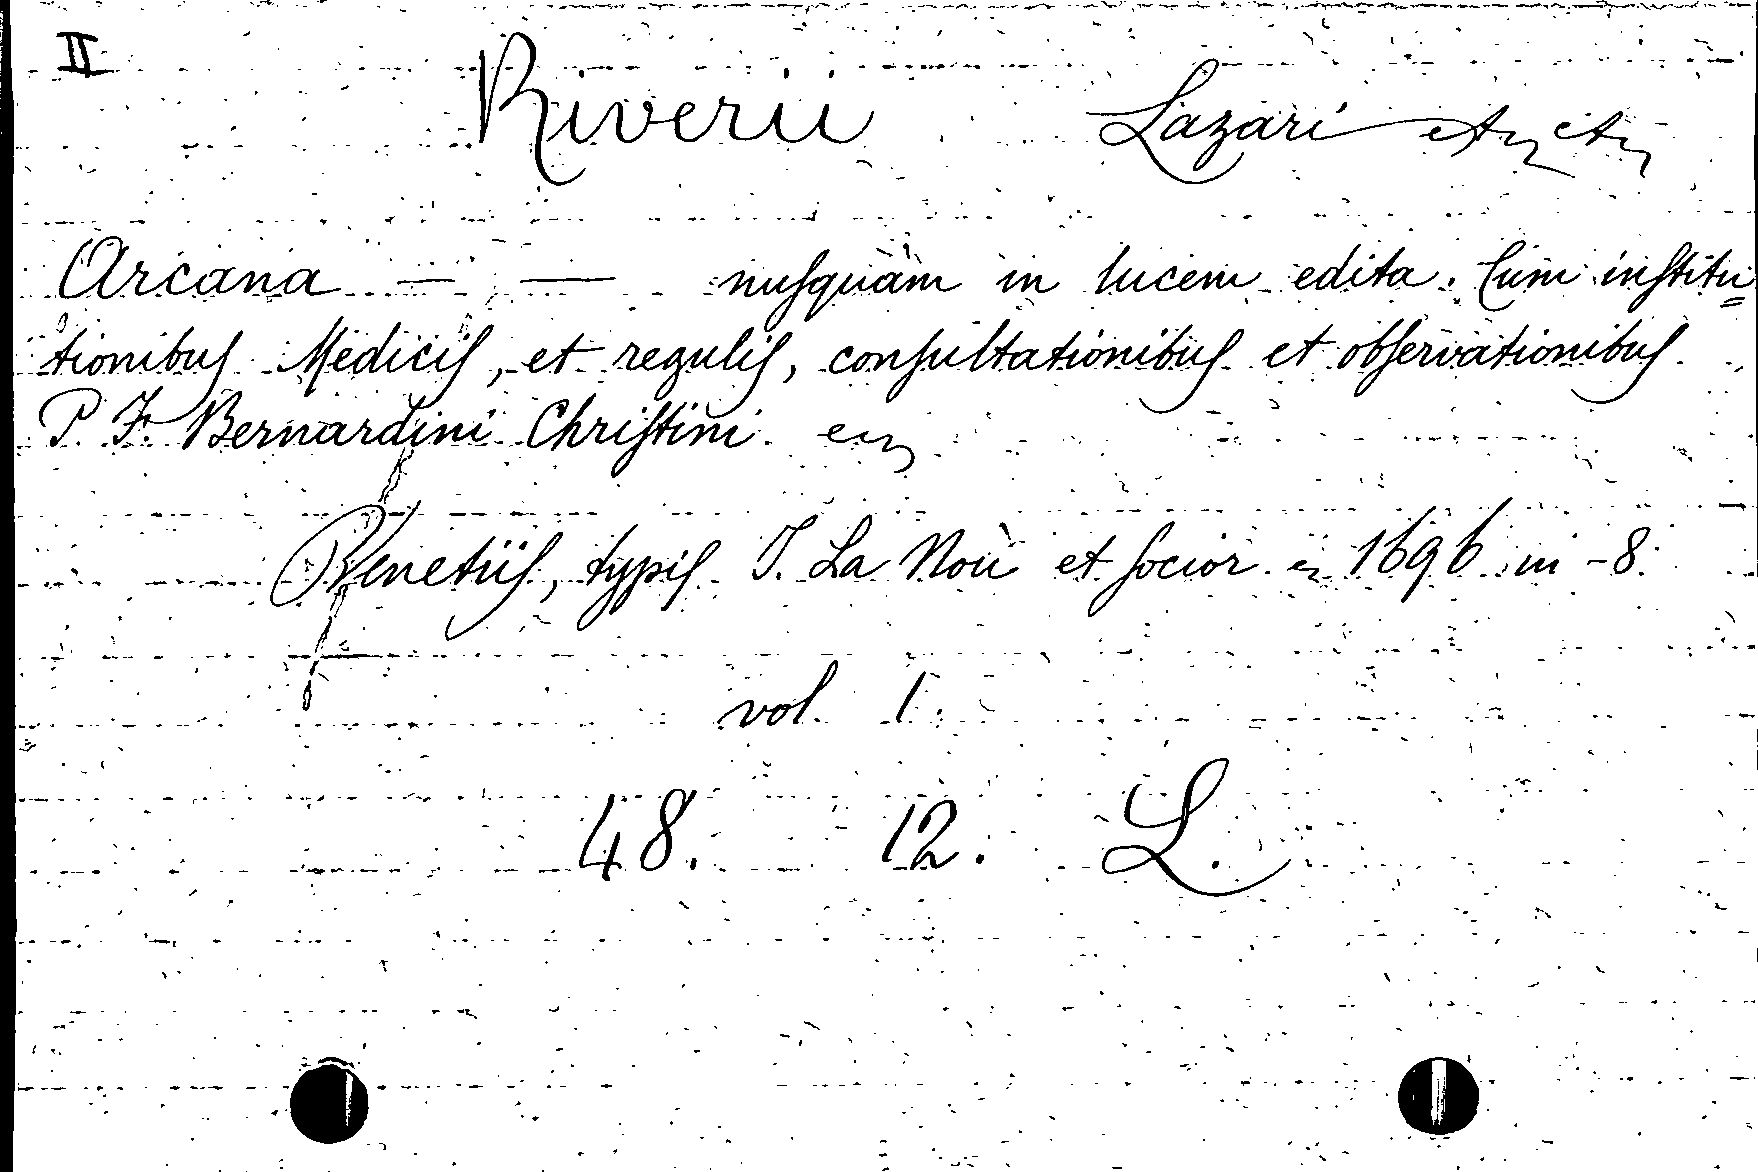 II
Riverii Lazari
Arcana — — nusquàm in lucem edita. Cum institu=
tionibus Medicis, et regulis, consultationibus et observationibus
P. Fr. Bernardini Christini.
Venetiis, typis J. La Noù et socior. 1696 in-8.
vol. 1.
48. 12. L.